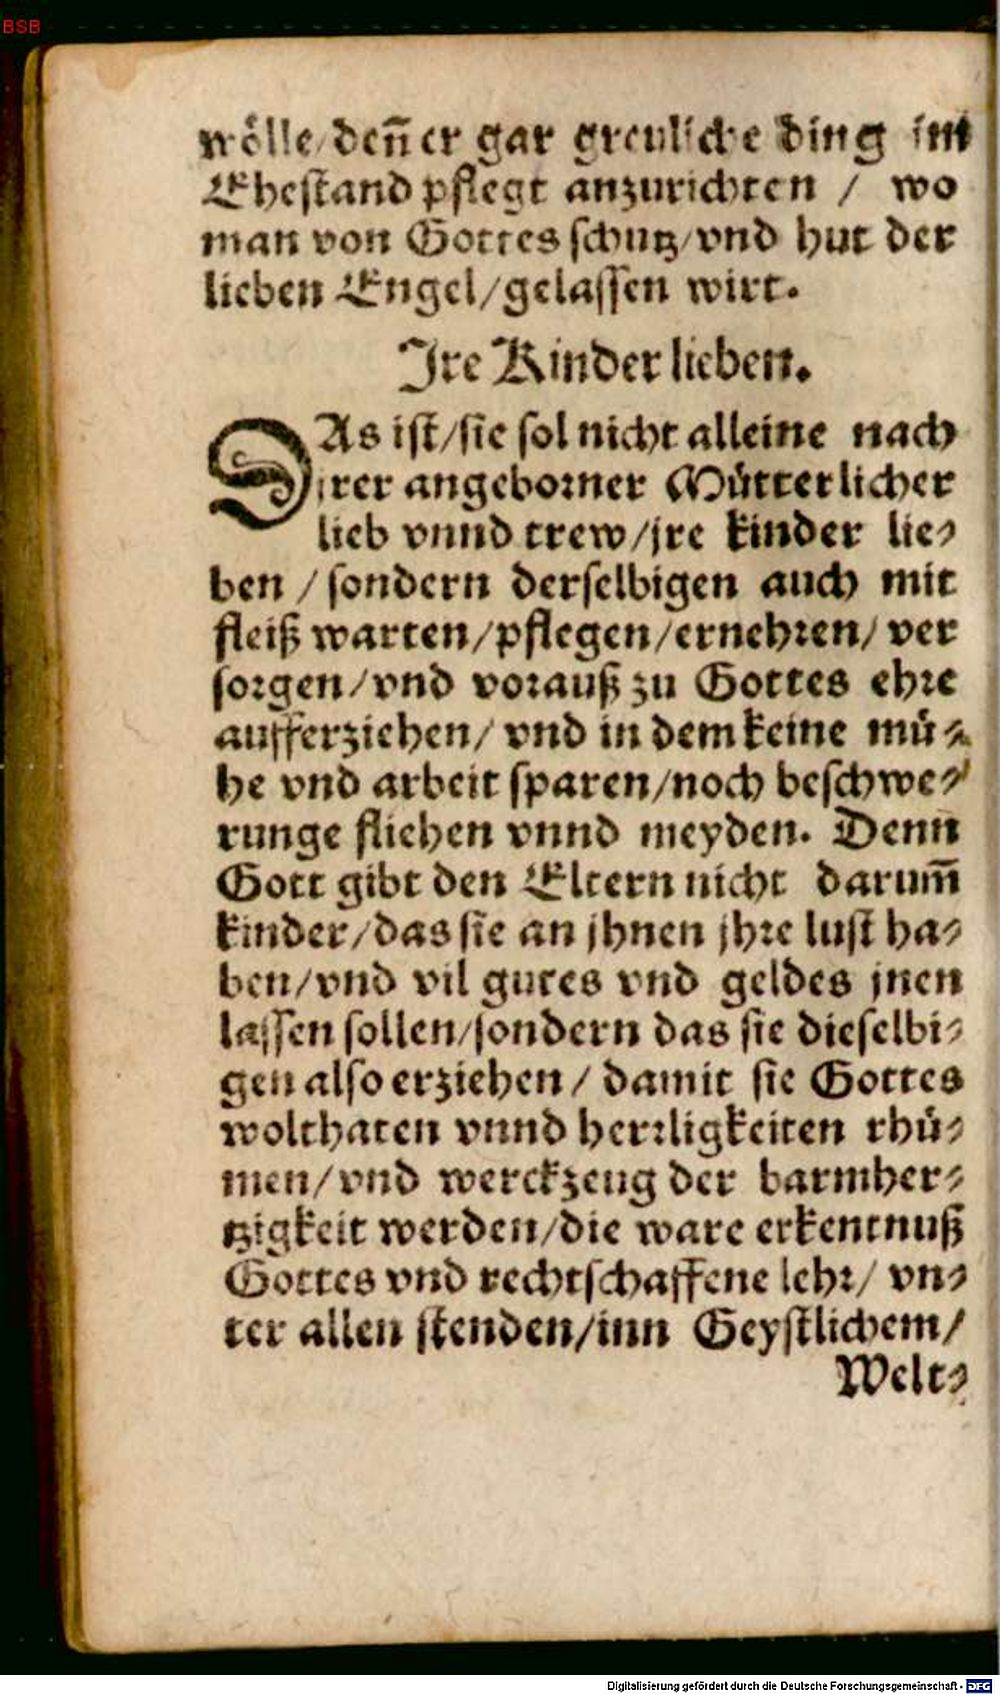 BSB
wölle/ deñ er gar greuliche ding im
Ehestand pflegt anzurichten / wo
man von Gottes schutz/vnd hut der
lieben Engel/gelassen wirt.
Jre Kinder lieben.
DAs ist/sie sol nicht alleine nach
jrer angeborner Mütterlicher
lieb vnnd trew/jre kinder lie-
ben / sondern derselbigen auch mit
fleiß warten/pflegen/ernehren/ ver
sorgen/vnd vorauß zu Gottes ehre
aufferziehen/ vnd in dem keine mü-
he vnd arbeit sparen/noch beschwe-
runge fliehen vnnd meyden. Denn
Gott gibt den Eltern nicht darum̃
kinder/das sie an jhnen jhre lust ha-
ben/vnd vil gutes vnd geldes jnen
lassen sollen/sondern das sie dieselbi-
gen also erziehen/ damit sie Gottes
wolthaten vnnd herrligkeiten rhü-
men/vnd werckzeug der barmher-
tzigkeit werden/die ware erkentnuß
Gottes vnd rechtschaffene lehr/ vn-
ter allen stenden/inn Geystlichem/
Welt-
Digitalisierung gefördert durch die Deutsche Forschungsgemeinschaft - DFG